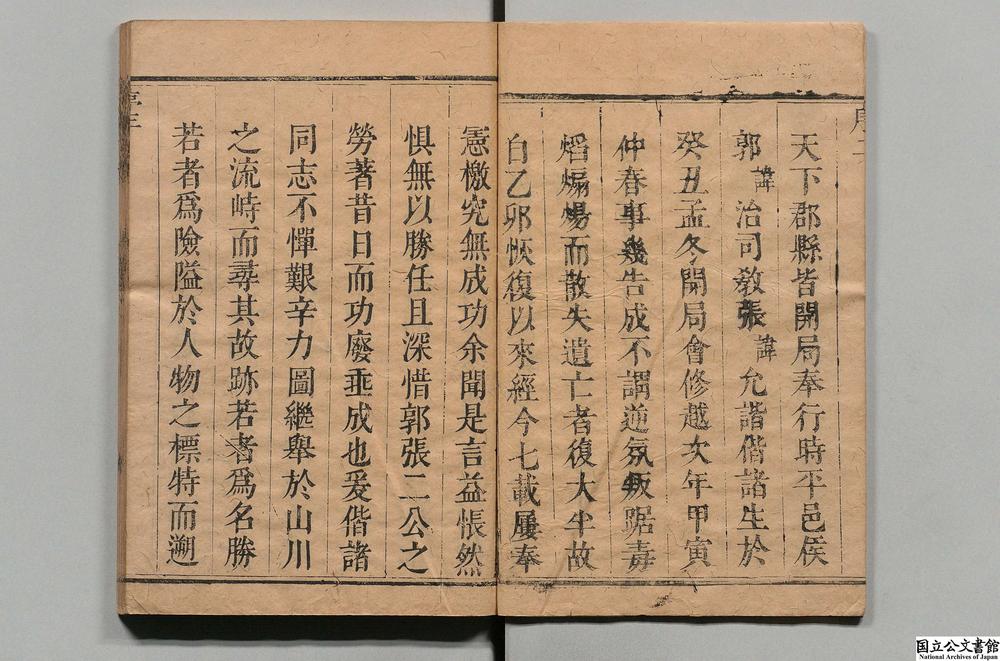 天下郡縣皆開局奉行時平邑侯
郭諱治司教張諱允諧偕諸生於
癸丑孟冬開局會修越次年甲寅
仲春事幾告成不謂逆氛叛踞毒
熖煽惕而散失遺亡者復大半故
自乙卯恢復以來經今七載屢奉
憲檄究無成功余聞是言益悵然
惧無以勝任且深惜郭張二公之
勞著昔日而功廢垂成也爰偕諸
同志不憚艱辛力圖繼舉於山川
之流峙而尋其故跡若者爲名勝
若者爲險隘於人物之標特而遡
国立公文書館
National Archives of Japan